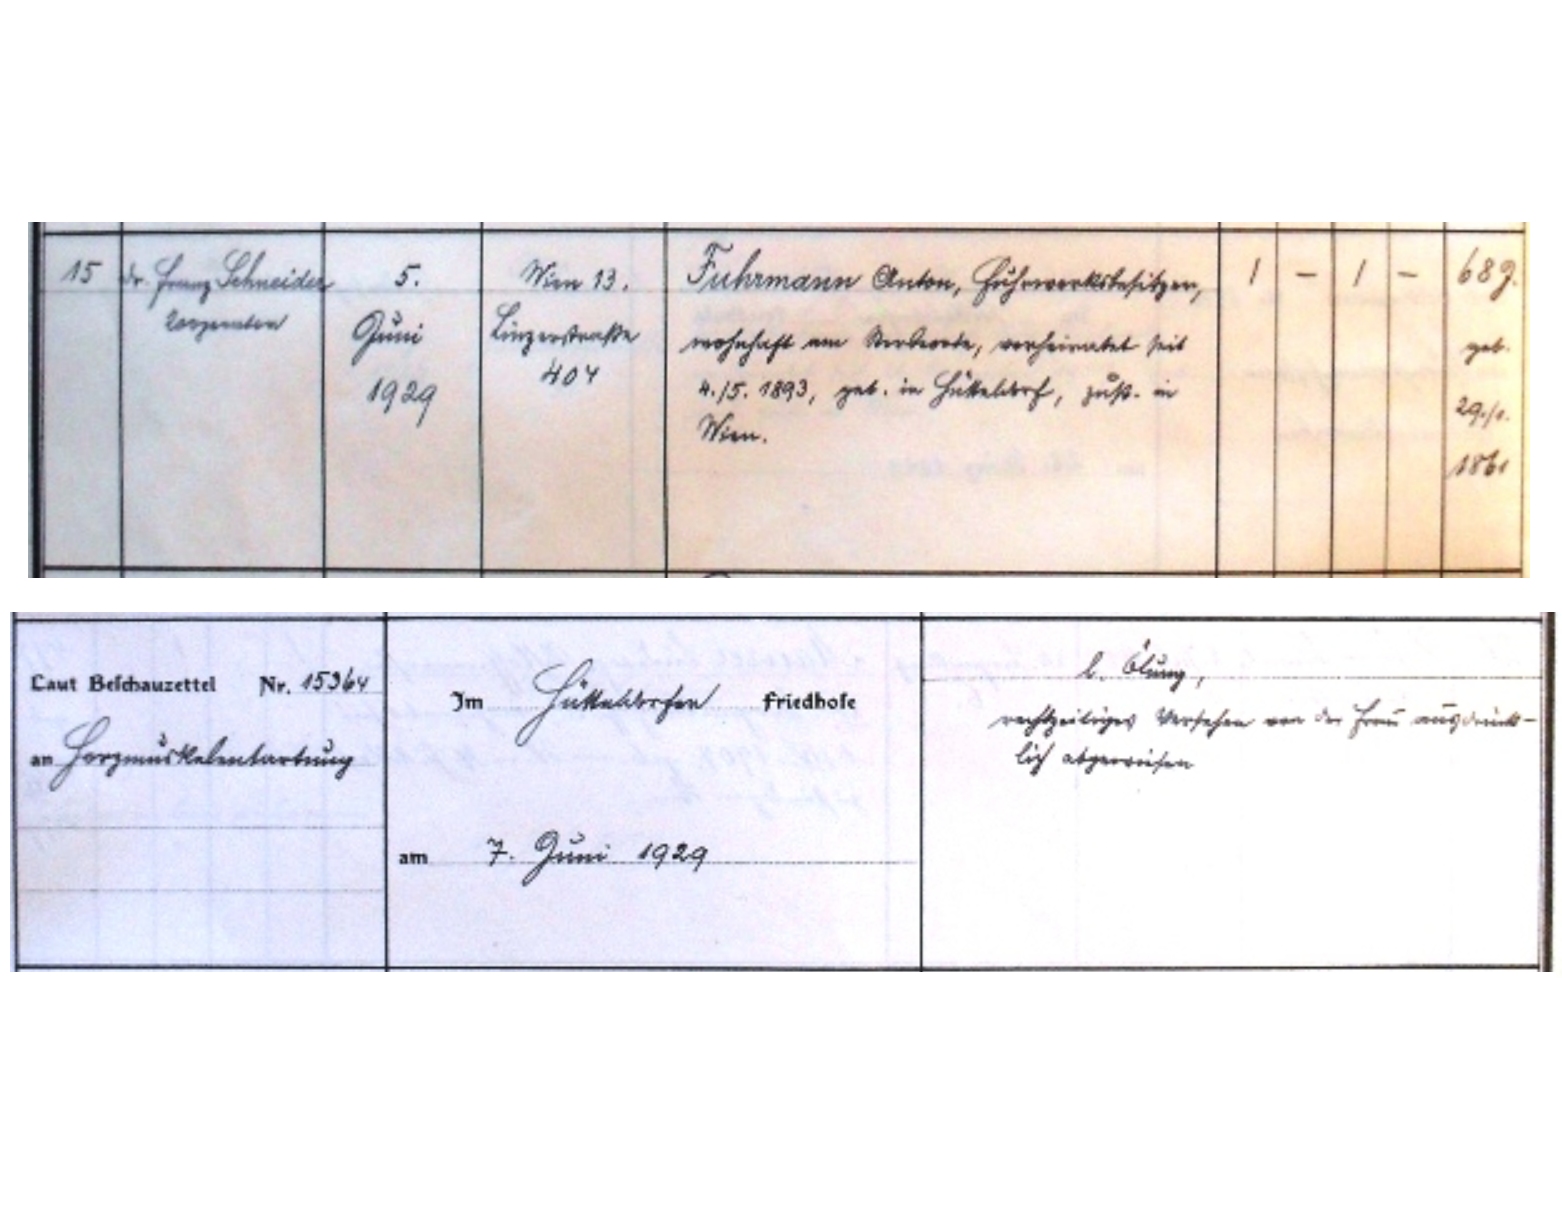 15
Dr. Franz Schneider
Kooperator
5.
Juni
1929
Wien 13.
Linzerstraße
404
Fuhrmann Anton, Fuhrwerksbesitzer,
wohnhaft am Sterbeorte, verheiratet seit
4./5. 1893, geb. in Hütteldorf, zust. in
Wien.
1 – 1 –
68 J.
geb.
29./1.
1861
Laut Beschauzettel Nr. 15364
an Herzmuskelentartung
Im Hütteldorfer Friedhofe
am 7. Juni 1929
l. Ölung,
rechtzeitiges Versehen von der Frau ausdrück-
lich abgewiesen